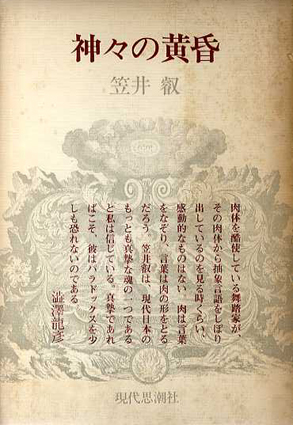 神々の黄昏
笠井 叡
肉体を酷使している舞踏家が
その肉体から抽象言語をしぼり
出しているのを見る時ぐらい、
感動的なものはない。肉は言葉
をなぞり、言葉は肉の形をとる
だろう。笠井叡は、現代日本の
もっとも真摯な魂の一つである
と私は信じている。真摯であれ
ばこそ、彼はパラドックスを少
しも恐れないのである
澁澤龍彦
現代思潮社